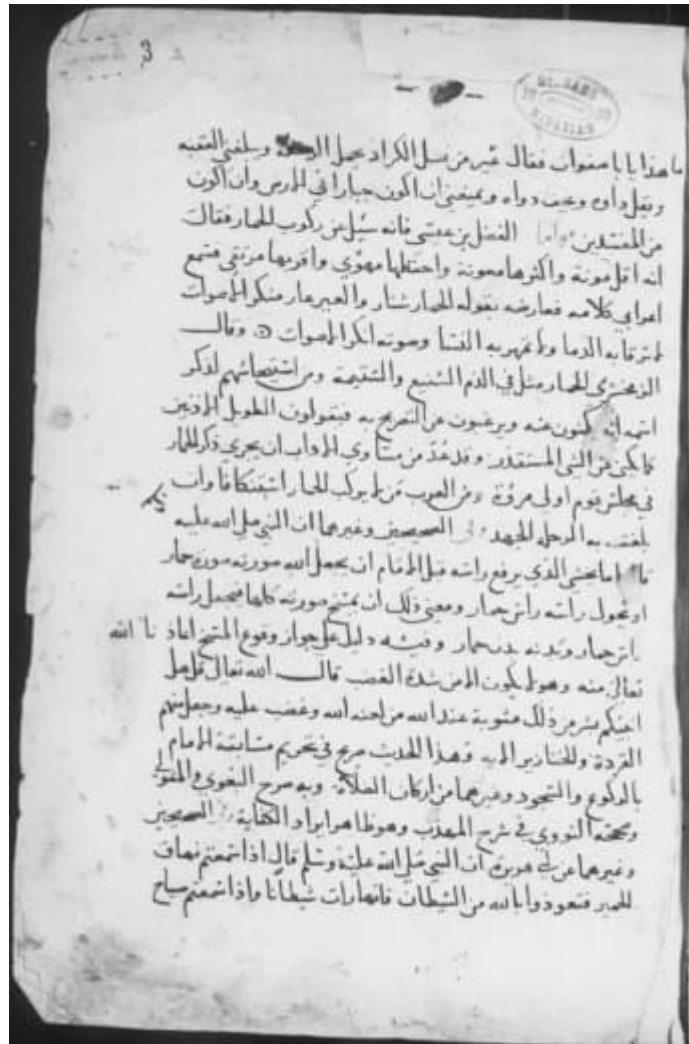 3
ما هذا يا ابا صفوان فقال عير من نسل الكداد يحمل الرحلة ويبلغني العقبة
ويقل داؤه ويخف دواؤه ويمنعني ان اكون جبارا في الارض وان اكون
من المفسدين واما الفضل بن عيسى فانه سئل عن ركوب الحمار فقال
انه اقل مونة واكثرها معونة واخفضها مهوى واقربها مرتقى فسمع
اعرابي كلامه فعارضه بقوله الحمار شنار والعير عار منكر الصوت
لا ترقا به الدما ولا تمهر به النسا وصوته انكر الاصوات وقال
الزمخشري الحمار مثل في الذم الشنيع والشتيمة ومن استيحاشهم لذكر
اسمه انهم يكنون عنه ويرغبون عن التصريح به فيقولون الطويل الاذنين
كما يكنى عن الشي المستقذر وقد عد من مساوي الاداب ان يجري ذكر الحمار
في مجلس قوم اولى مروة ومن العرب من لا يركب الحمار استنكافا وان
بلغت به الرحلة الجهد وفي الصحيحين وغيرهما ان النبي صلى الله عليه
قال اما يخشى الذي يرفع راسه قبل الامام ان يجعل الله صورته صورة حمار
او يحول راسه راس حمار ومعنى ذلك ان يمسخ صورته كلها فيجعل راسه
راس حمار وبدنه بدن حمار وفيه دليل على جواز وقوع المسخ اعاذنا الله
تعالى منه وهو لا يكون الا من شدة الغضب قال الله تعالى قل هل
انبيكم بشر من ذلك مثوبة عند الله من لعنه الله وغضب عليه وجعل منهم
القردة والخنازير الاية وهذا الحديث صريح في تحريم مسابقة الامام
بالركوع والسجود وغيرهما من اركان الصلاة وبه صرح البغوي والمتولي
وصححه النووي في شرح المهذب وهو ظاهر ايراد الكفاية وفي الصحيحين
وغيرهما عن ابي هريرة ان النبي صلى الله عليه وسلم قال اذا سمعتم نهاق
الحمير فتعوذوا بالله من الشيطان فانها رات شيطانا واذا سمعتم صياح